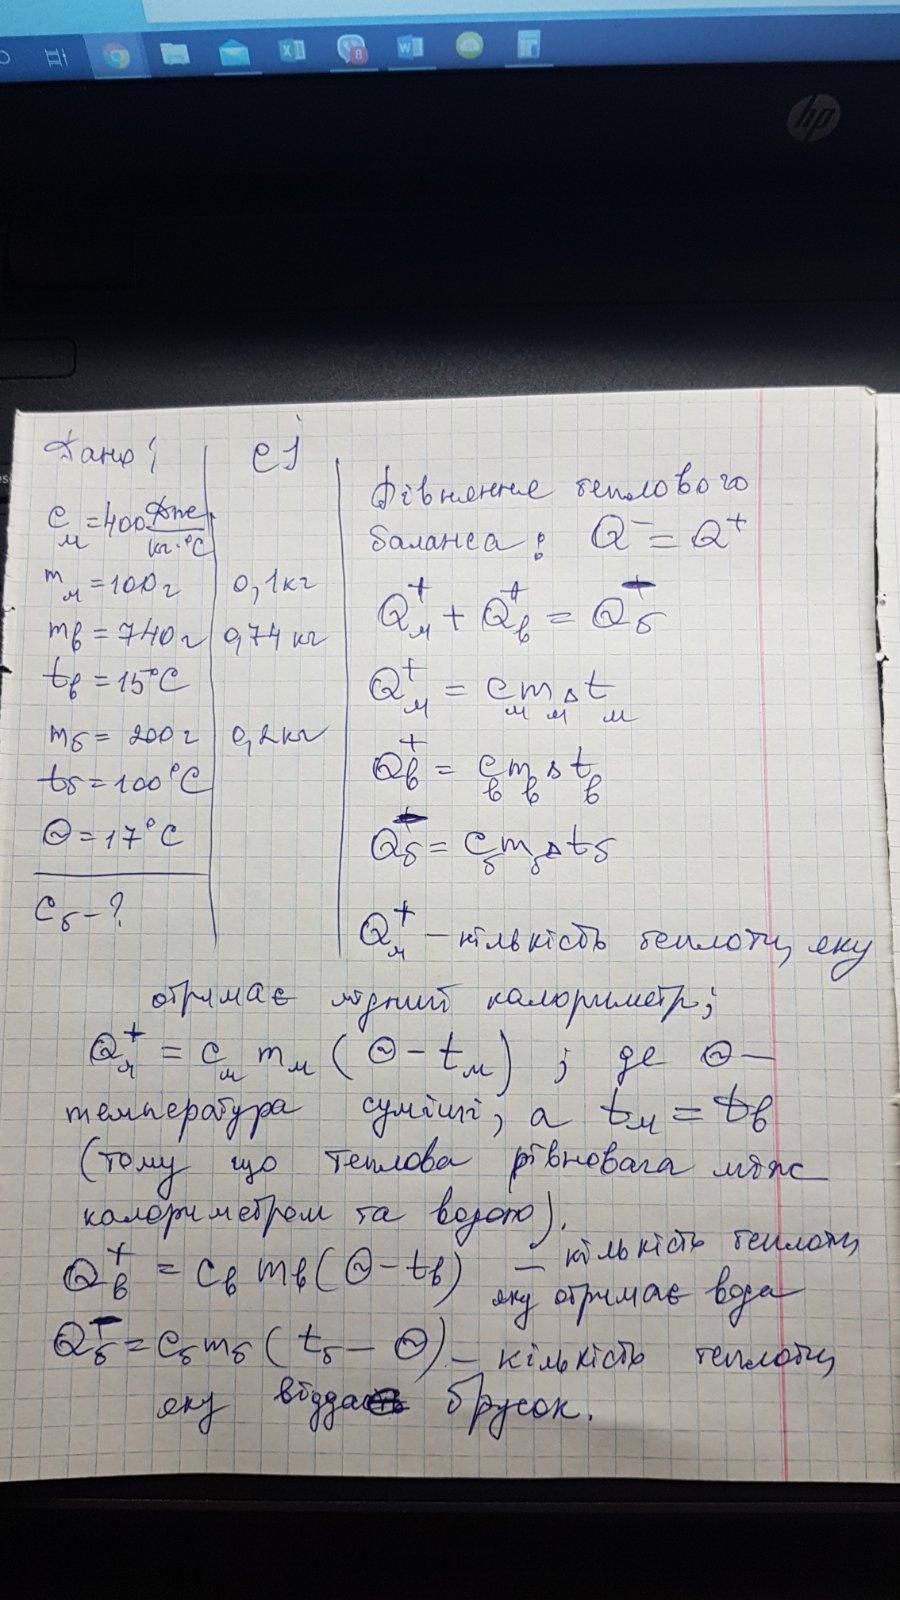 hp
8
Дано:
СІ
c_м = 400 Дж/кг·°C
m_м = 100г
0,1кг
m_в = 740г
0,74 кг
t_в = 15°C
m_б = 200г
0,2кг
t_б = 100°C
Θ = 17°C
c_б - ?
Рівняння теплового
баланса: Q⁻ = Q⁺
Q_м⁺ + Q_в⁺ = Q_б⁻
Q_м⁺ = c_м m_м Δt_м
Q_в⁺ = c_в m_в Δt_в
Q_б⁻ = c_б m_б Δt_б
Q_м⁺ – кількість теплоти, яку
отримає мідний калориметр;
Q_м⁺ = c_м m_м (Θ - t_м) ; де Θ –
температура суміші, а t_м = t_в
(тому що теплова рівновага між
калориметром та водою).
Q_в⁺ = c_в m_в (Θ - t_в) – кількість теплоти,
яку отримає вода
Q_б⁻ = c_б m_б (t_б - Θ) – кількість теплоти,
яку брусок.